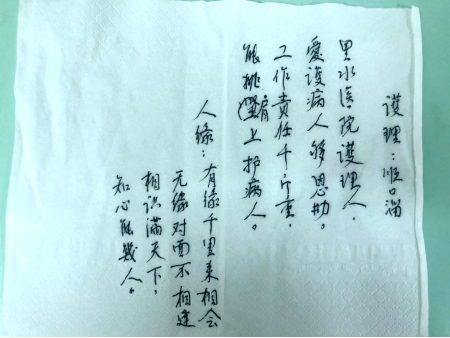 護理：順口溜
里水医院護理人，
愛護病人够恩
工作責任千斤重，
能挑肩上护病人。
人緣：有缘千里来相会
无缘对面不相逢
相识满天下，
知心能幾人。